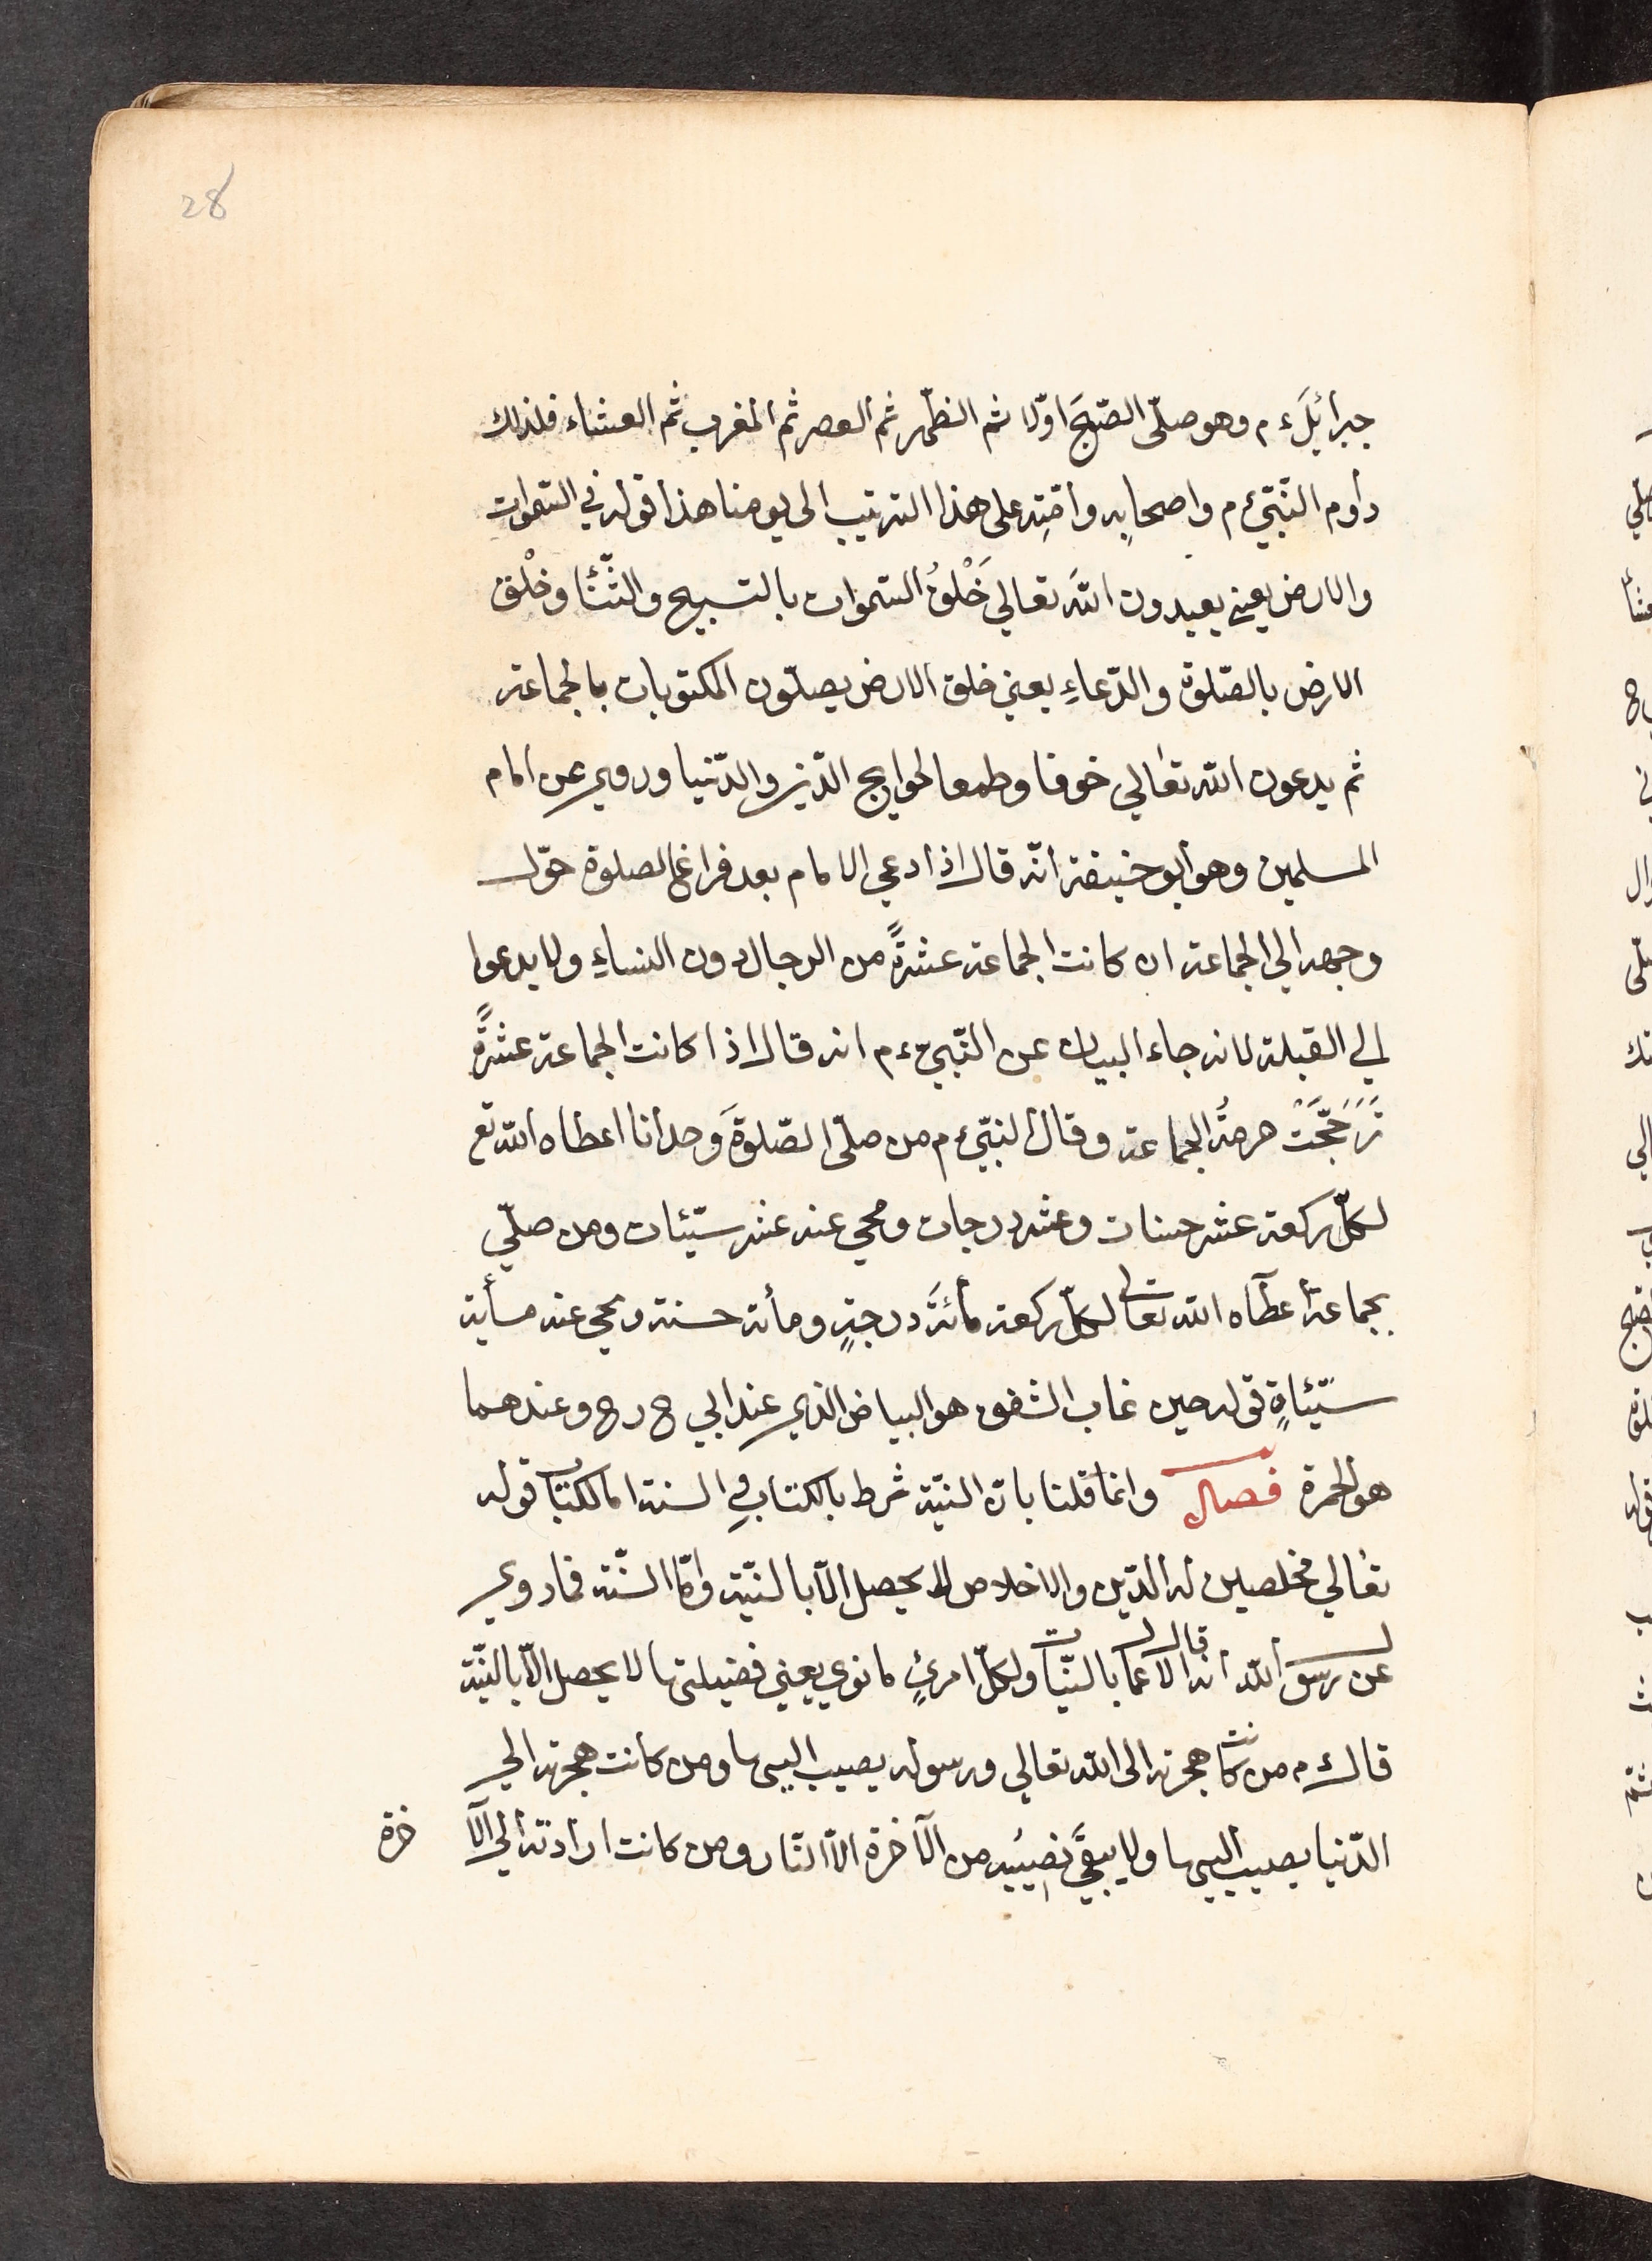 28
جبرائيلَ ءم وهو صلّى الصّبحَ اوّلا ثم الظهر ثم العصر ثم المغرب ثم العشاء فلذلك
داوم النّبيّ ءم واصحابه وامّتِه على هذا الترتيب الى يومنا هذا قوله في السّموات
والارض يعني يعبدون اللّه تعالي خَلْقُ السّموات بالتسبيح والثّنَا وخلْق
الارض بالصّلوة والدّعاءِ يعني خلق الارض يصلّون المكتوبات بالجماعة
ثم يدعون اللّه تعالي خوفا وطمعا لحوايج الدّين والدّنيا وروي عن امام
المسلمين وهو ابو حنيفة انّه قال اذا دعي الامام بعد فراغ الصلوة حوّل
وجهه الي الجماعة ان كانت الجماعة عشرةً من الرجال دون النساءِ ولا يدعوا
الي القبلة لانه جاء البيان عن النّبيّ ءم انه قال اذا كانت الجماعة عشرةً
تَرَجَّحَتْ حرمةُ الجماعة وقال النبيّ ءم من صلّى الصّلوةَ وحدانا اعطاه اللّه تع
لكلّ ركعة عشر حسنات وعشر درجات ومحي عنه عشر سيّئات ومن صلّي
بجماعة اعطاه اللّه تعالى لكلّ ركعة مائةَ درجةٍ ومأئة حسنة ومحي عنه مأية
سيّئاةٍ قوله حين غاب الشفق هو البياض الذي عند ابي ح رح وعندهما
هو الحمرة فصل وانما قلنا بان النيّة شرط بالكتابِ والسنة اما الكتاب قوله
تعالي مخلصين له الدّين والاخلاص لا يحصل الّا بالنيّة وامّا السّنّة فما روي
عن رسول اللّه انه قال الاعمال بالنيّات ولكلّ امرئٍ ما نوي يعني فضيلتها لا يحصل الّا بالنيّة
قال ءم من كانت هجرته الى اللّه تعالي ورسوله يصيب اليها ومن كانت هجرته الي
الدّنيا يصيب اليها ولا يبقَي نصيبُه من الآخرة الّا النّار ومن كانت ارادته الي الآ
خرة